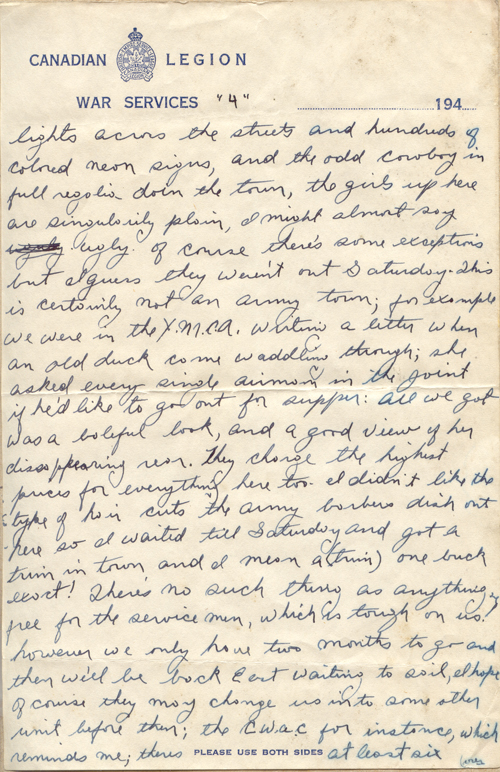 CANADIAN LEGION
WAR SERVICES "4" 194
lights across the streets and hundreds of
colored neon signs, and the odd cowboy in
full regalia doin the town, the girls up here
are singularily plain, I might almost say
ugly. of course there's some exceptions
but I guess they weren't out Saturday. This
is certainly not an army town; for example
we were in the Y.M.C.A. writing a letter when
an old duck come waddling through; she
asked every single airman in the joint
if he'd like to go out for supper: all we got
was a baleful look, and a good view of her
dissappearing rear. They charge the highest
prices for everything here too. I didn't like the
type of hair cuts the army barbers dish out
here so I waited till Saturday and got a
trim in town and I mean a (trim) one buck
exact! There's no such thing as anything
free for the service men, which is tough on us.
however we only have two months to go and
then we'll be back East waiting to sail, I hope
of course they may change us into some other
unit before then; the C.W.A.C for instance, which
reminds me; theres at least six
PLEASE USE BOTH SIDES